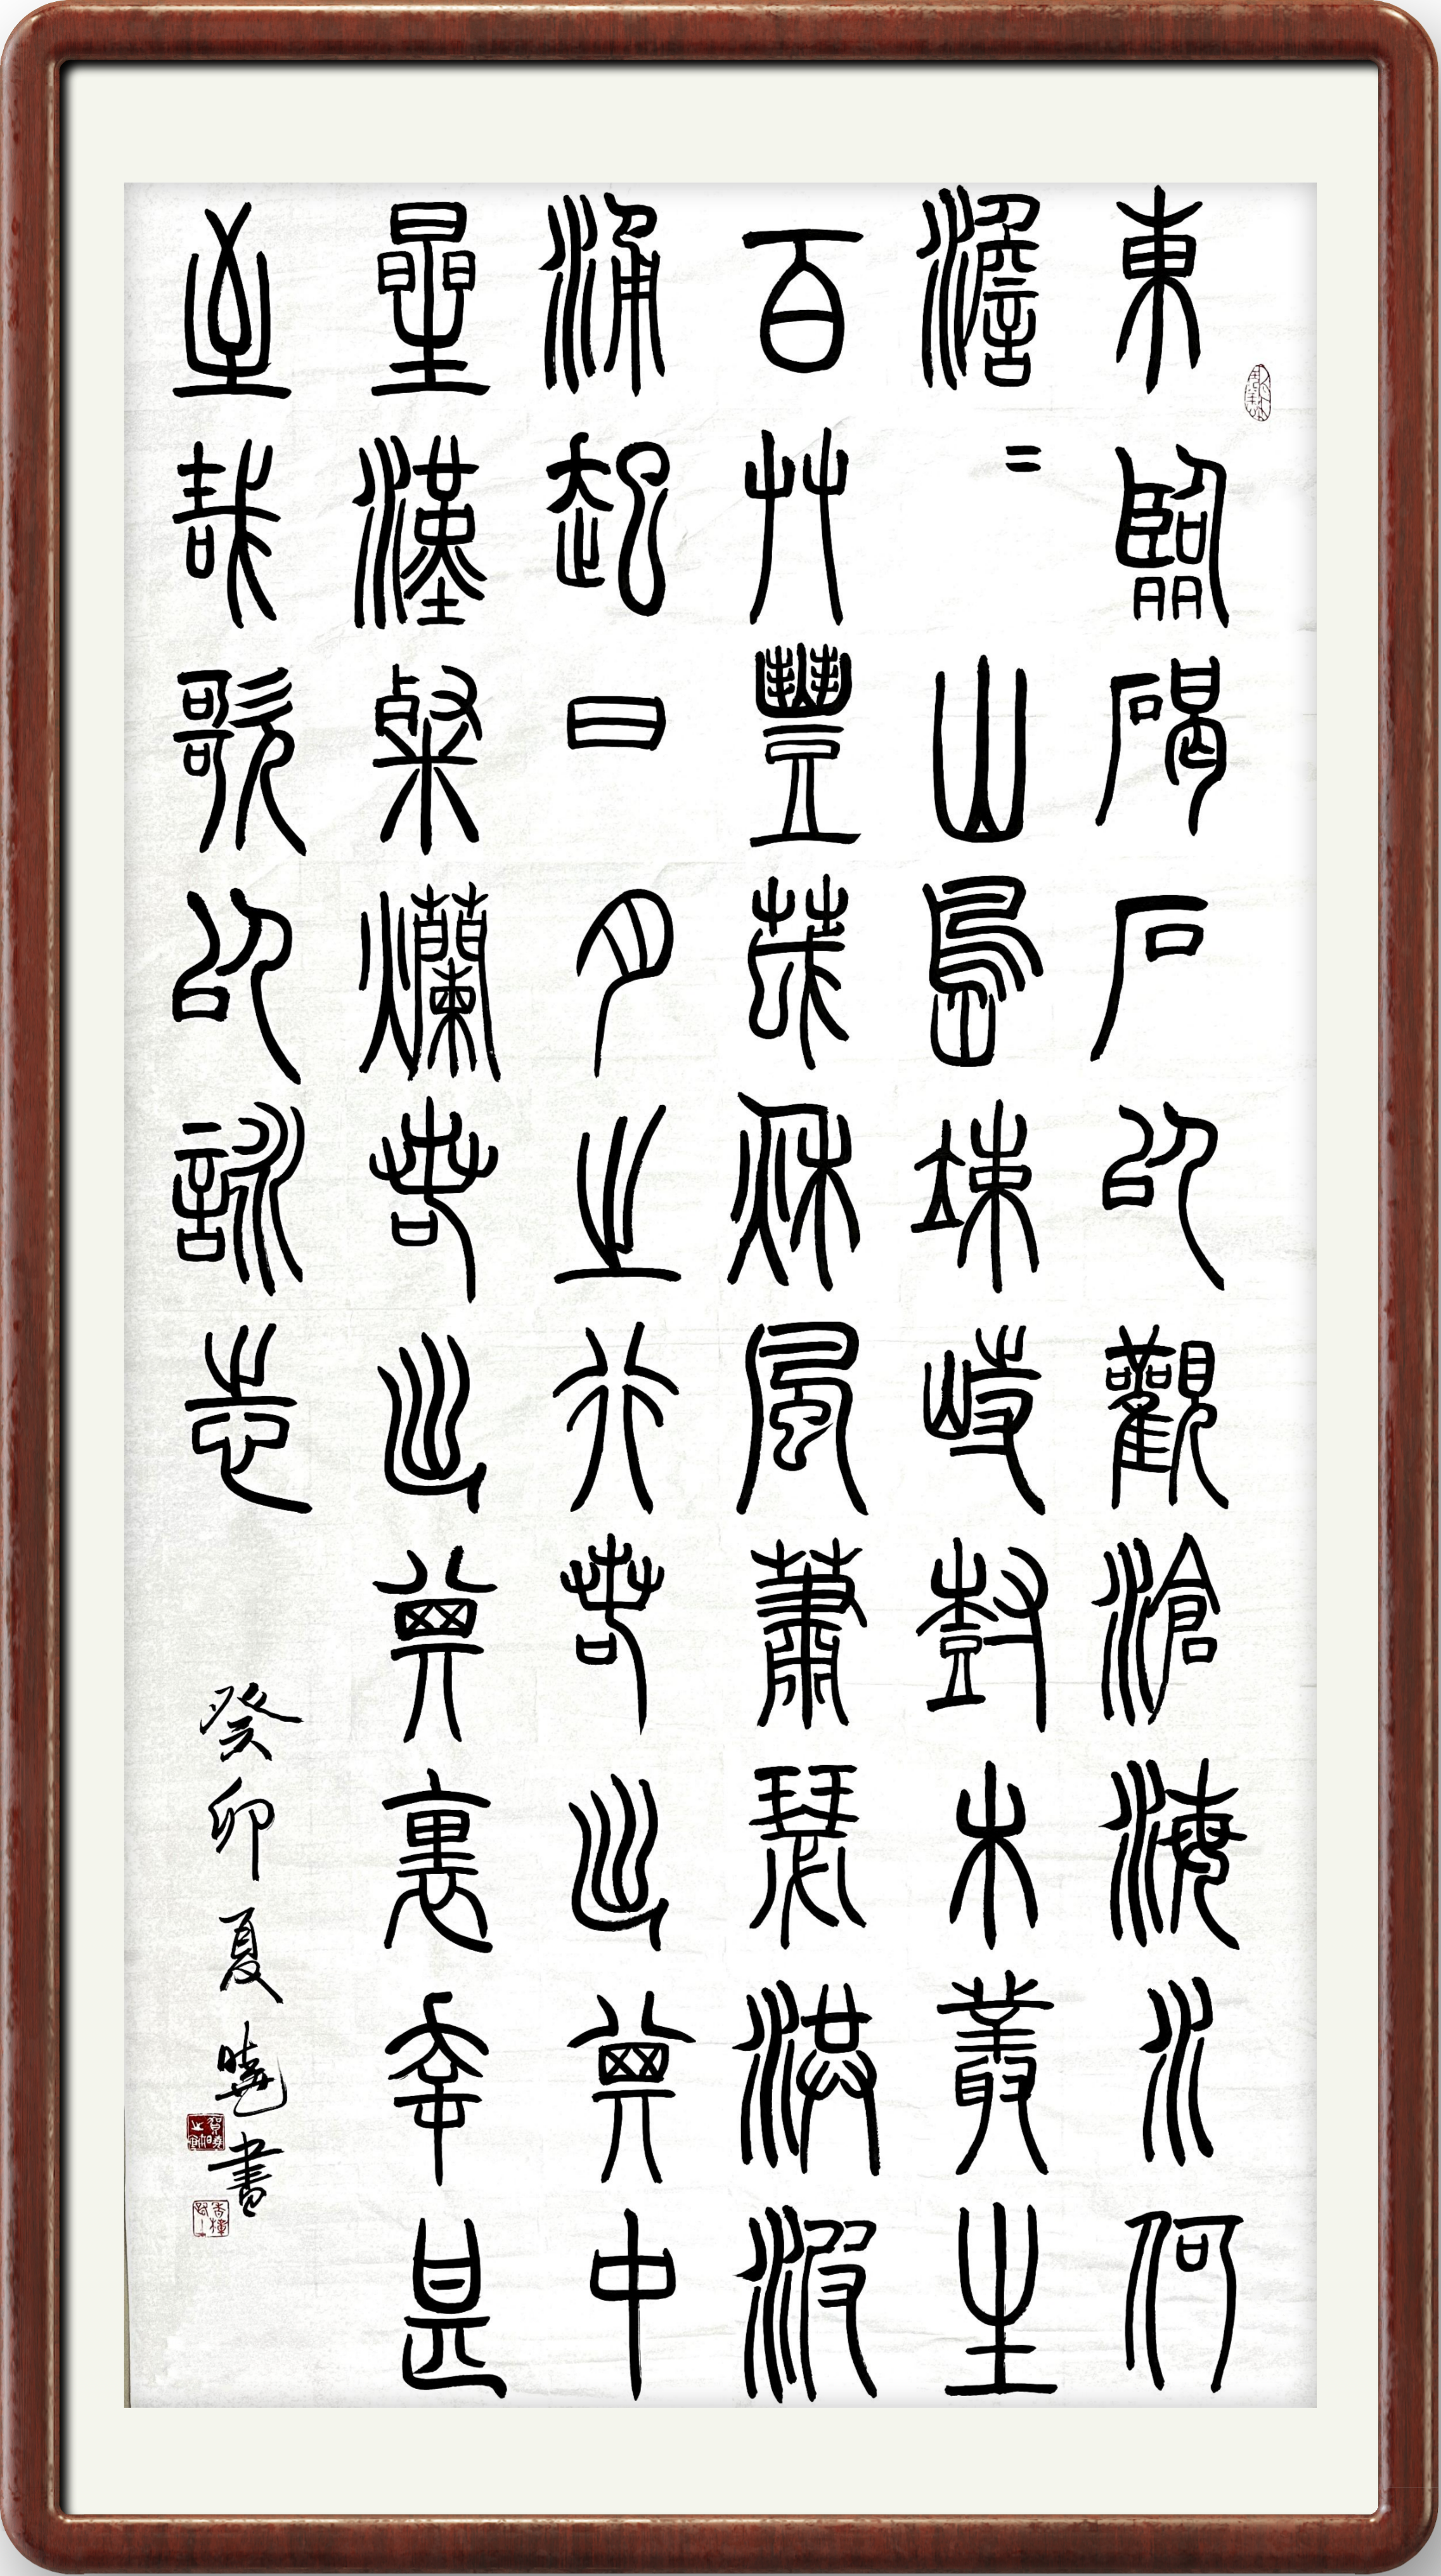 東臨碣石以觀滄海水何
澹〻山島竦峙樹木叢生
百艸豐茂秋風蕭瑟洪波
涌起日月之行若出其中
星漢粲爛若出其裏幸甚
至哉歌以詠志
癸卯夏曉書